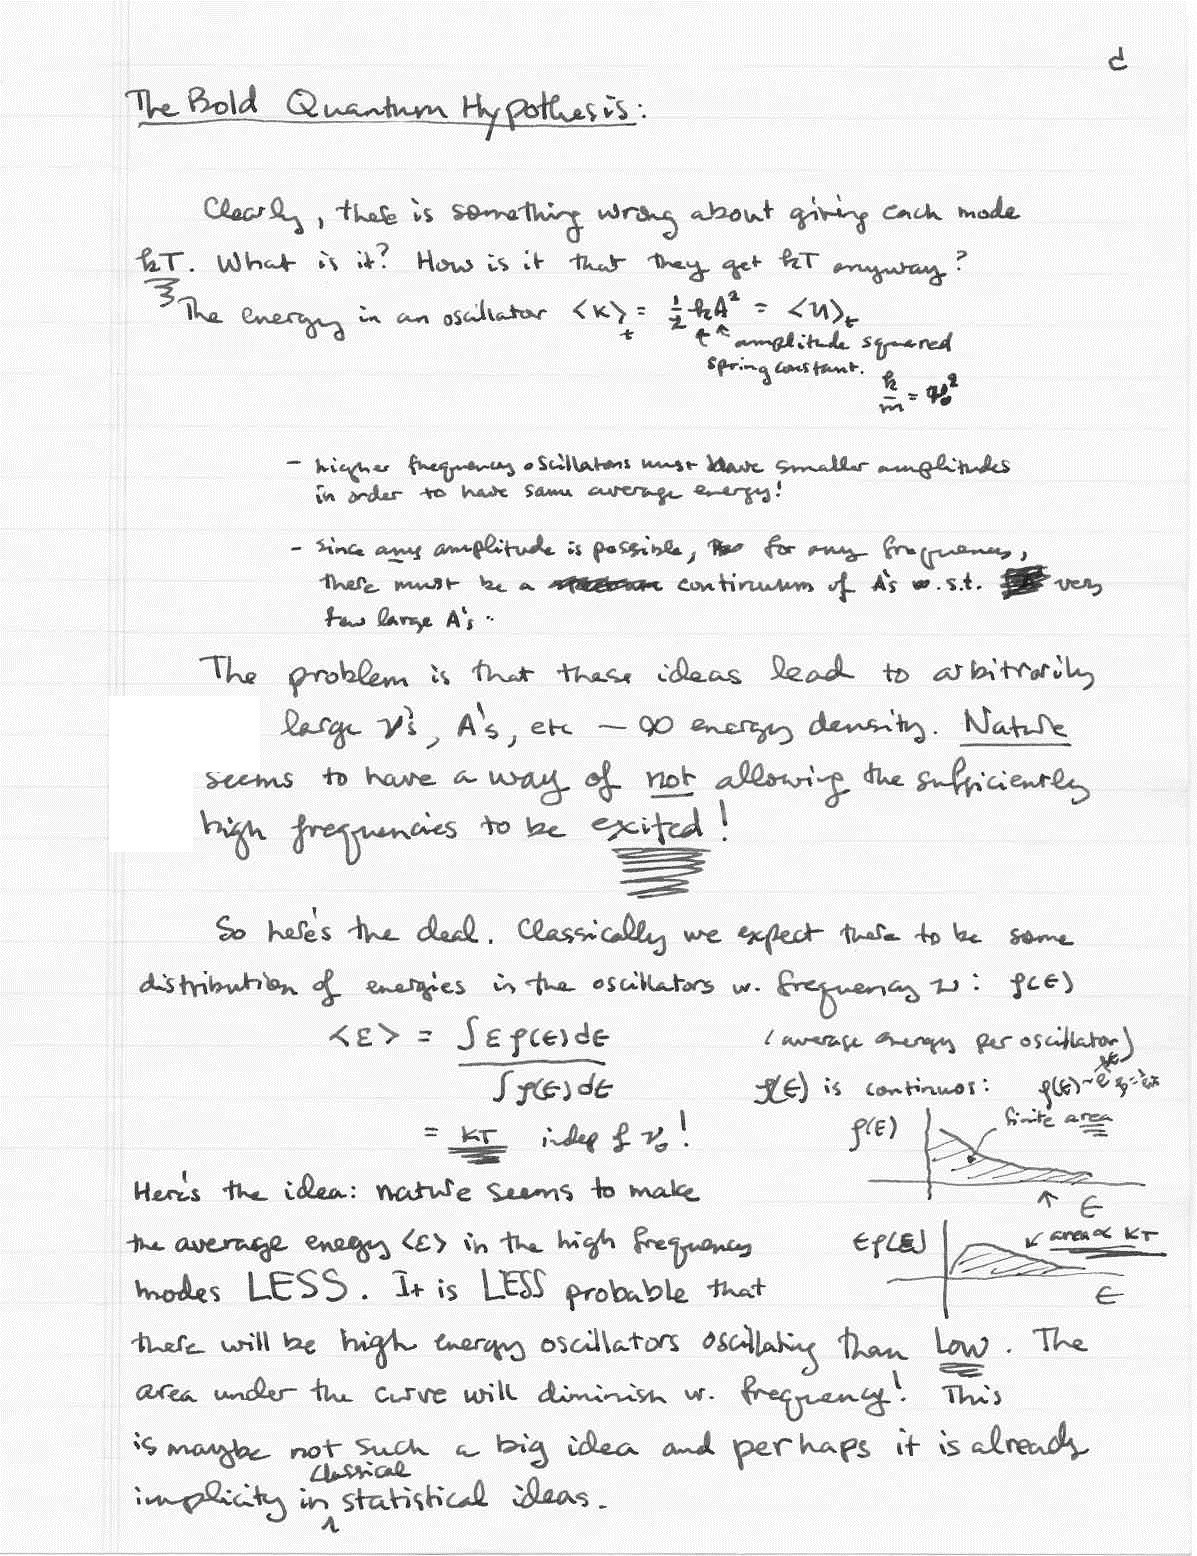 d
The Bold Quantum Hypothesis:
Clearly, there is something wrong about giving each mode
kT. What is it? How is it that they get kT anyway?
The energy in an oscillator <K>t = 1/2 kA² = <U>t
amplitude squared
spring constant.
k/m = ν₀²
- higher frequency oscillators must have smaller amplitudes
in order to have same average energy!
- since any amplitude is possible, for any frequency,
there must be a continuum of A's s.t. very
few large A's
The problem is that these ideas lead to arbitrarily
large ν's, A's, etc — ∞ energy density. Nature
seems to have a way of not allowing the sufficiently
high frequencies to be exited!
So here's the deal. Classically we expect there to be some
distribution of energies in the oscillators w. frequency ν: ρ(ϵ)
<ε> = ∫ε ρ(ϵ)dϵ / ∫ρ(ϵ)dϵ (average energy per oscillator)
ρ(ϵ) is continuos: ρ(ϵ)~e
= kT indep of ν₀!
ρ(ϵ) finite area
ϵ
Here's the idea: nature seems to make
the average enegy <ε> in the high frequency
ϵρ(ϵ) area ∝ kT
ϵ
modes LESS. It is LESS probable that
there will be high energy oscillators oscillating than low. The
area under the curve will diminish w. frequency! This
is maybe not such a big idea and perhaps it is already
implicity in classical statistical ideas.